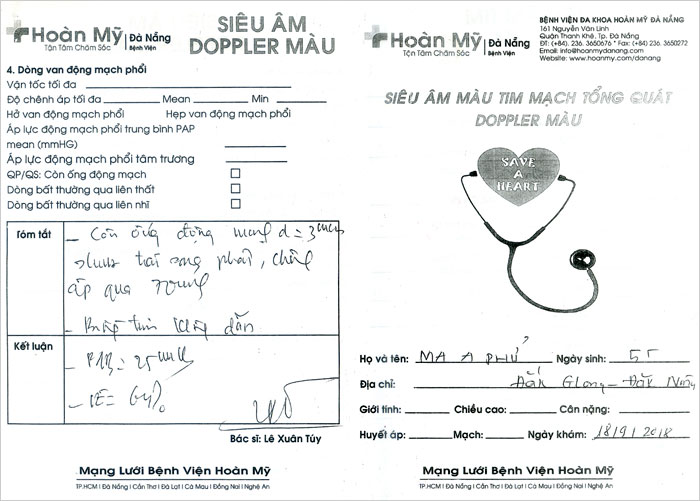 Hoàn Mỹ
Tận Tâm Chăm Sóc
Đà Nẵng
Bệnh Viện
SIÊU ÂM
DOPPLER MÀU
4. Dòng van động mạch phổi
Vận tốc tối đa
Độ chênh áp tối đa Mean Min
Hở van động mạch phổi Hẹp van động mạch phổi
Áp lực động mạch phổi trung bình PAP
mean (mmHG)
Áp lực động mạch phổi tâm trương
QP/QS: Còn ống động mạch
Dòng bất thường qua liên thất
Dòng bất thường qua liên nhĩ
Tóm tắt
- Còn ống động mạng d = 3mm
shunt trái sang phải, chênh
áp qua
- Buồng tim không dãn
Kết luận
- PAB = 25 mmHg
- EF = 64%
Bác sĩ: Lê Xuân Túy
Mạng Lưới Bệnh Viện Hoàn Mỹ
TP.HCM I Đà Nẵng I Cần Thơ I Đà Lạt I Cà Mau I Đồng Nai I Nghệ An
Hoàn Mỹ
Tận Tâm Chăm Sóc
Đà Nẵng
Bệnh Viện
BỆNH VIỆN ĐA KHOA HOÀN MỸ ĐÀ NẴNG
161 Nguyễn Văn Linh
Quận Thanh Khê, Tp. Đà Nẵng
ĐT: (+84). 236. 3650676 * Fax: (+84) 236. 3650272
Email: info@hoanmydanang.com
Website: www.hoanmy.com/danang
SIÊU ÂM MÀU TIM MẠCH TỔNG QUÁT
DOPPLER MÀU
SAVE
A
HEART
Họ và tên: MA A PHỦ Ngày sinh: 5T
Địa chỉ: Đắk Glong - Đắk Nông
Giới tính: Chiều cao: Cân nặng:
Huyết áp: Mạch: Ngày khám: 18/9/2018
Mạng Lưới Bệnh Viện Hoàn Mỹ
TP.HCM I Đà Nẵng I Cần Thơ I Đà Lạt I Cà Mau I Đồng Nai I Nghệ An